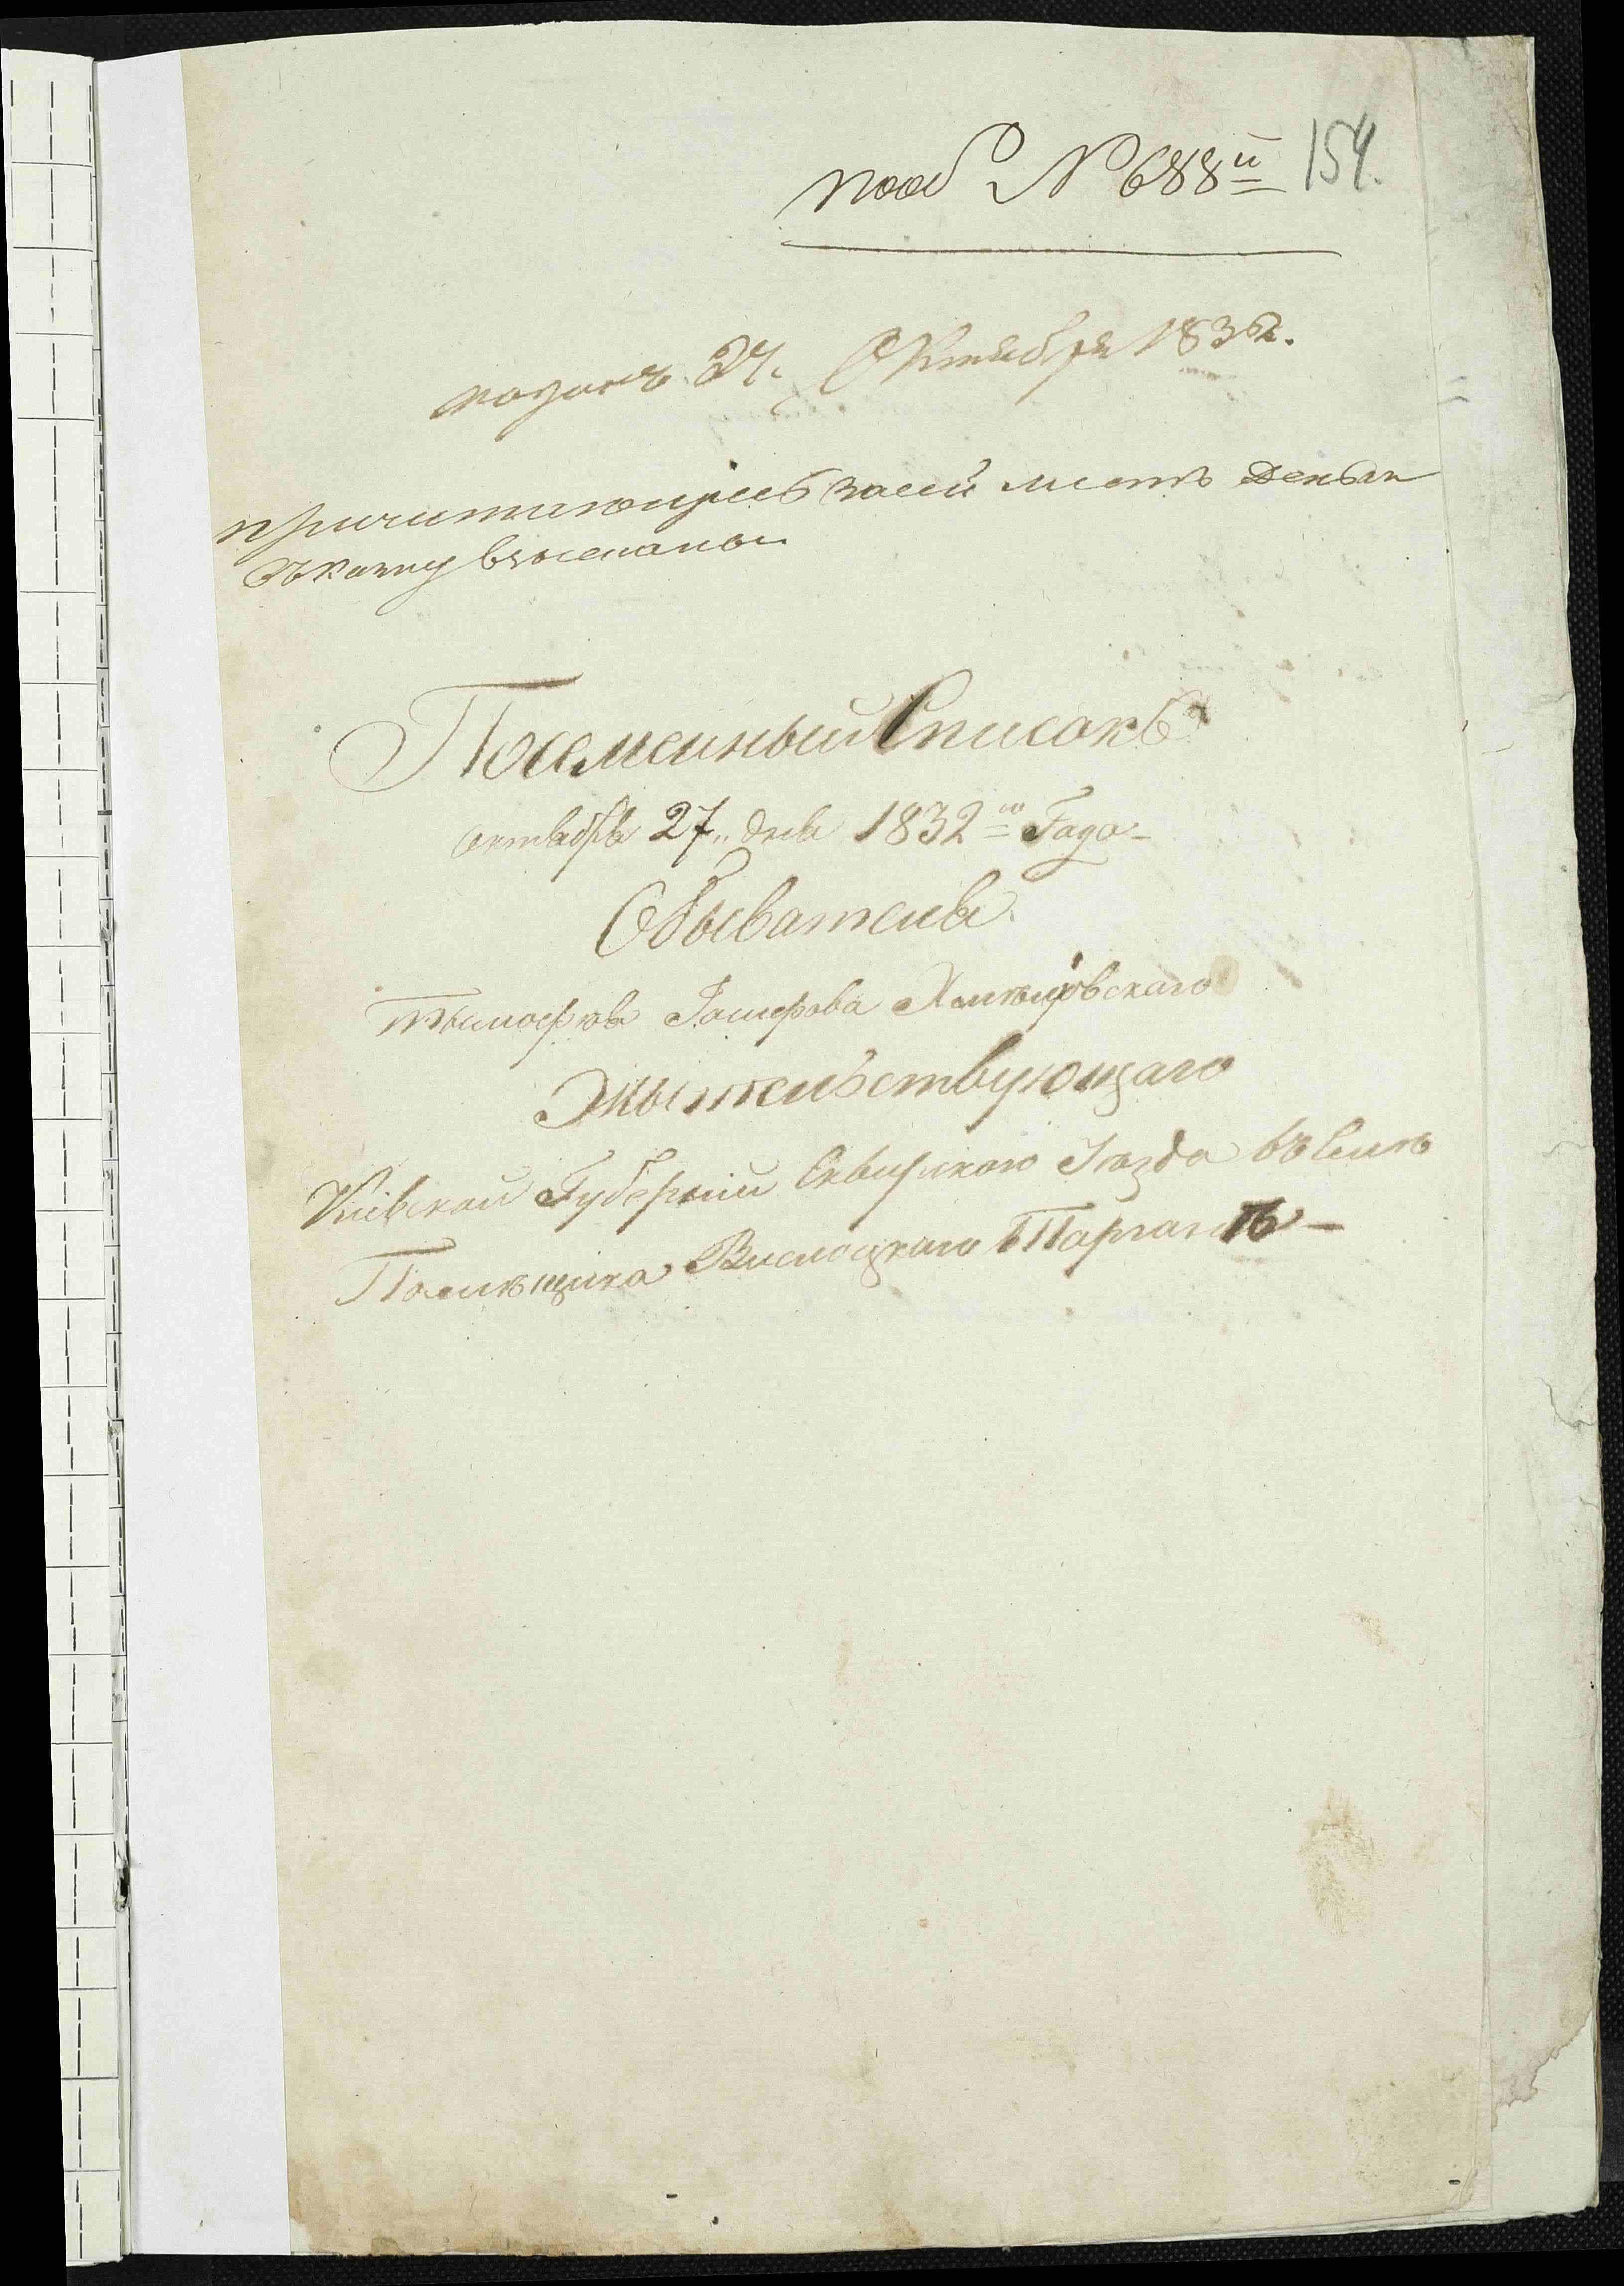 № 688й 154.
подан 27. Октября 1832.
причитающиесь засей листъ деньги
въказну взысканы
Поименный Списокъ
октября 27„ дня 1832го Года
Обывателя
Тымофея Хмѣлювскаго
Жытельствующаго
Кіевской Губернии Сквирского Уезда въ Селѣ
Помѣщика Вислоцкаго Тарганѣ